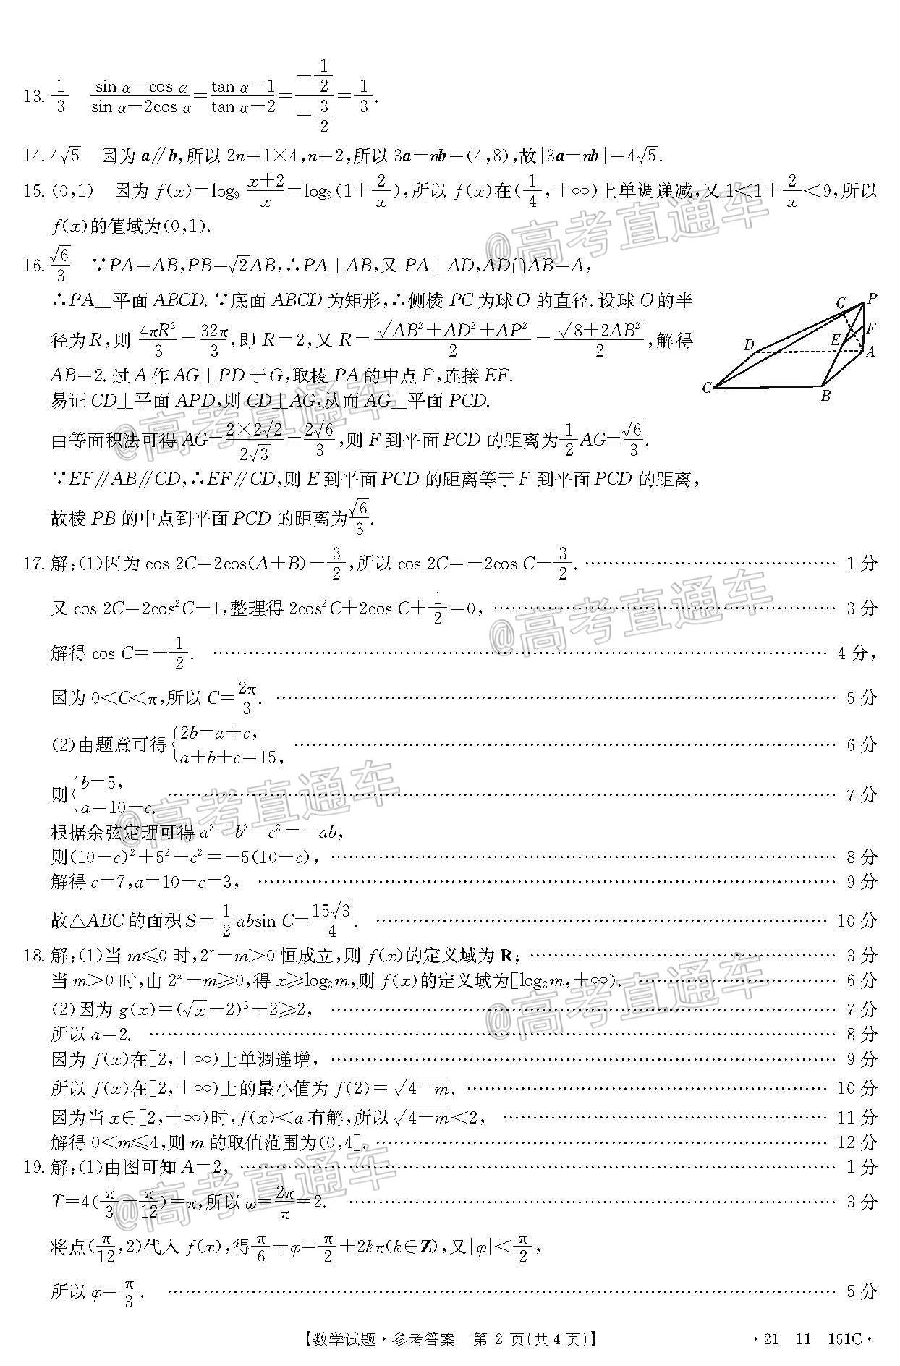 13. 1/3 (sin α−cos α)/(sin α−2cos α)=(tan α−1)/(tan α−2)=(−1/2)/(−3/2)=1/3.
14. 4√5 因为 a∥b,所以 2n=1×4,n=2,所以 3a−nb=(4,8),故|3a−nb|=4√5.
15. (0,1) 因为 f(x)=log₉ (x+2)/x=log₉(1+2/x),所以 f(x)在(1/4,+∞)上单调递减,又 1<1+2/x<9,所以
f(x)的值域为(0,1).
16. √6/3 ∵PA=AB,PB=√2AB,∴PA⊥AB,又 PA⊥AD,AD∩AB=A,
∴PA⊥平面 ABCD.∵底面 ABCD 为矩形,∴侧棱 PC 为球 O 的直径.设球 O 的半
径为 R,则 4πR³/3=32π/3,即 R=2,又 R=√(AB²+AD²+AP²)/2=√(8+2AB²)/2,解得
AB=2.过 A 作 AG⊥PD 于 G,取棱 PA 的中点 F,连接 EF.
易证 CD⊥平面 APD,则 CD⊥AG,从而 AG⊥平面 PCD.
由等面积法可得 AG=(2×2√2)/(2√3)=2√6/3,则 F 到平面 PCD 的距离为 1/2 AG=√6/3.
∵EF∥AB∥CD,∴EF∥CD,则 E 到平面 PCD 的距离等于 F 到平面 PCD 的距离,
故棱 PB 的中点到平面 PCD 的距离为 √6/3.
G P
F
E
D A
C B
17. 解:(1)因为 cos 2C=2cos(A+B)−3/2,所以 cos 2C=−2cos C−3/2. …… 1 分
又 cos 2C=2cos²C−1,整理得 2cos²C+2cos C+1/2=0, …… 3 分
解得 cos C=−1/2. …… 4 分,
因为 0<C<π,所以 C=2π/3. …… 5 分
(2)由题意可得{2b=a+c, a+b+c=15, …… 6 分
则{b=5, a=10−c. …… 7 分
根据余弦定理可得 a²+b²−c²=−ab,
则(10−c)²+5²−c²=−5(10−c), …… 8 分
解得 c=7,a=10−c=3, …… 9 分
故△ABC 的面积 S=1/2 absin C=15√3/4. …… 10 分
18. 解:(1)当 m≤0 时,2ˣ−m>0 恒成立,则 f(x)的定义域为 R; …… 3 分
当 m>0 时,由 2ˣ−m≥0,得 x≥log₂m,则 f(x)的定义域为[log₂m,+∞). …… 6 分
(2)因为 g(x)=(√x−2)²+2≥2, …… 7 分
所以 a=2. …… 8 分
因为 f(x)在[2,+∞)上单调递增, …… 9 分
所以 f(x)在[2,+∞)上的最小值为 f(2)=√(4−m), …… 10 分
因为当 x∈[2,+∞)时,f(x)<a 有解,所以 √(4−m)<2, …… 11 分
解得 0<m≤4,则 m 的取值范围为(0,4]. …… 12 分
19. 解:(1)由图可知 A=2, …… 1 分
T=4(π/3−π/12)=π,所以 ω=2π/π=2. …… 3 分
将点(π/12,2)代入 f(x),得 π/6+φ=π/2+2kπ(k∈Z),又|φ|<π/2,
所以 φ=π/3. …… 5 分
【数学试题·参考答案 第 2 页(共 4 页)】 ·21−11−151C·
@高考直通车
@高考直通车
@高考直通车
@高考直通车
@高考直通车
@高考直通车